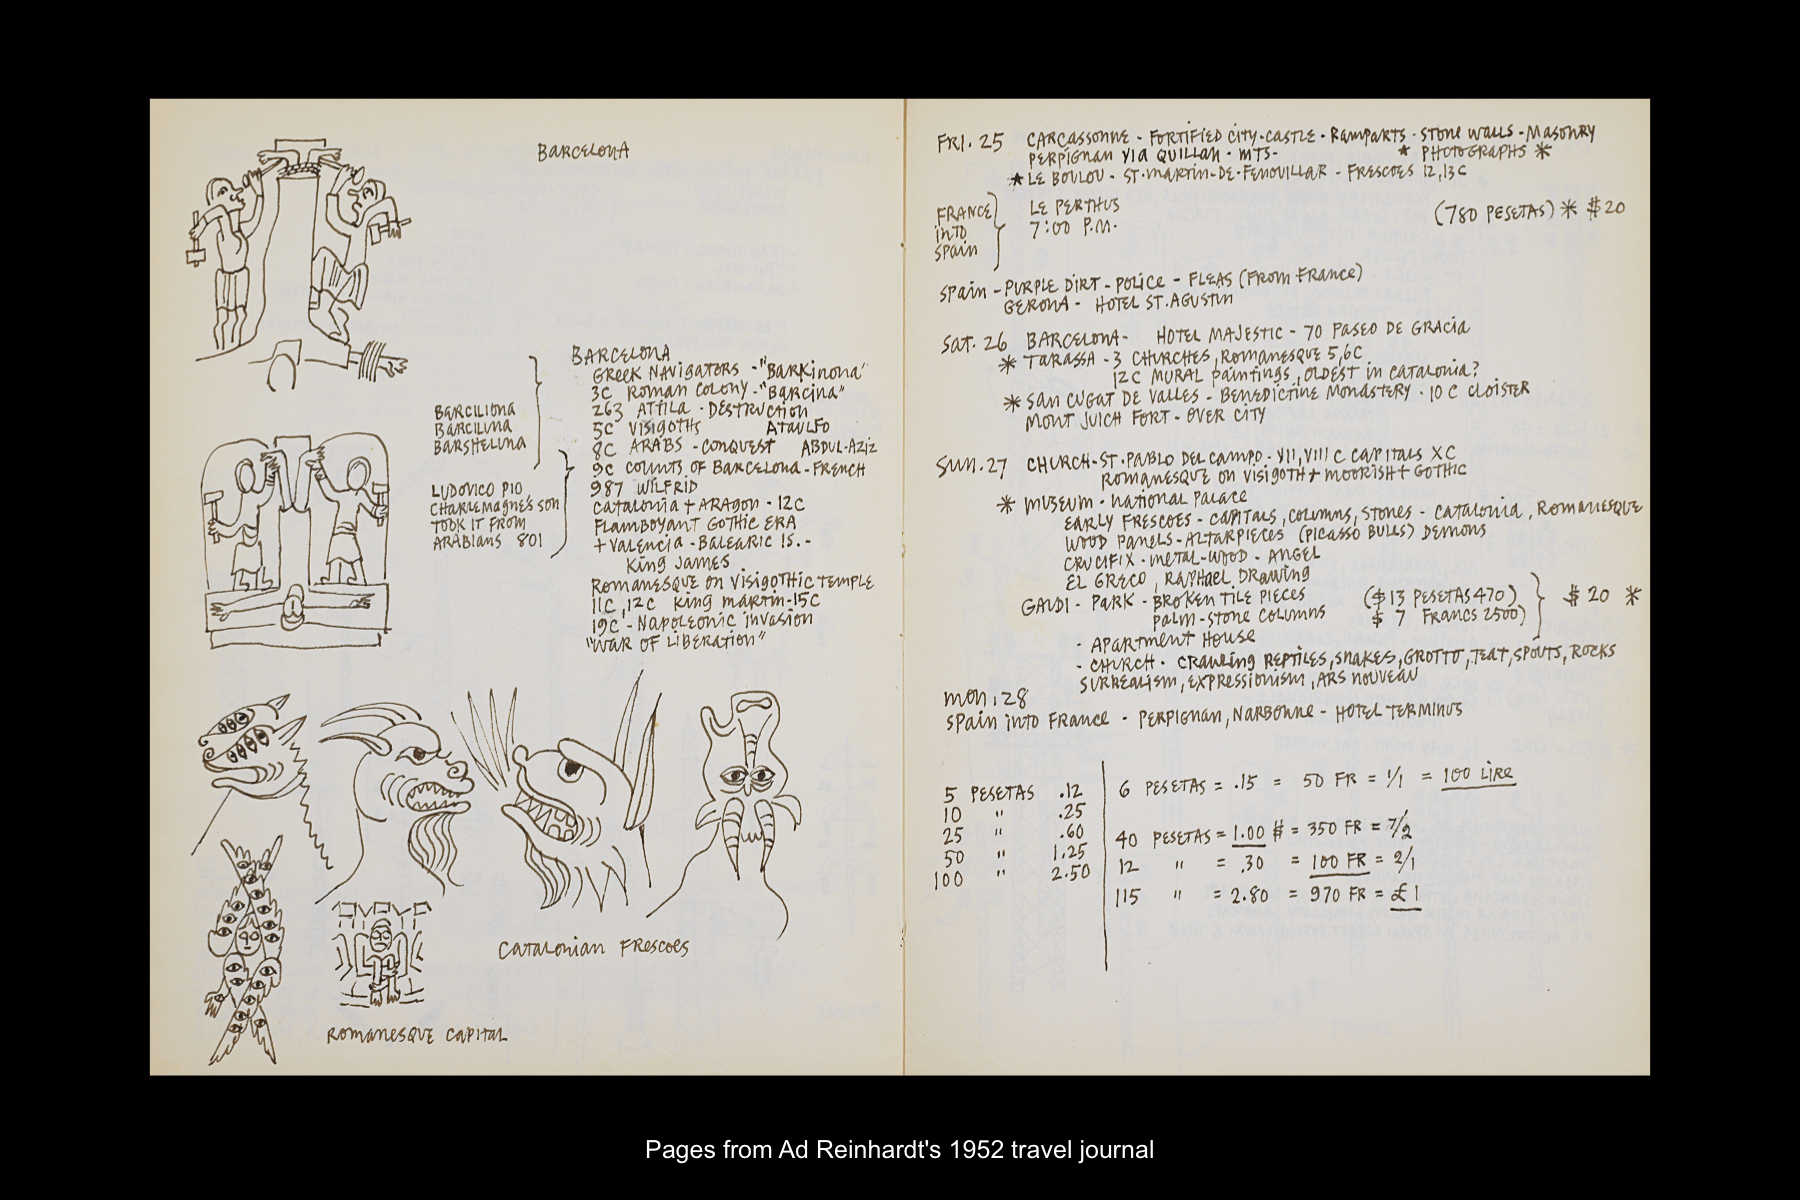 BARCELONA
BARCELONA
GREEK NAVIGATORS - "BARKINONA"
3C ROMAN COLONY - "BARCINA"
263 ATTILA - DESTRUCTION
5C VISIGOTHS ATAULFO
8C ARABS - CONQUEST ABDUL-AZIZ
9C COUNTS OF BARCELONA - FRENCH
987 WILFRID
CATALONIA + ARAGON - 12C
FLAMBOYANT GOTHIC ERA
+ VALENCIA - BALEARIC IS. -
KING JAMES
ROMANESQUE ON VISIGOTHIC TEMPLE
11C, 12C KING MARTIN - 15C
19C - NAPOLEONIC INVASION
"WAR OF LIBERATION"
BARCILIONA
BARCILUNA
BARSHELUNA
LUDOVICO PIO
CHARLEMAGNE'S SON
TOOK IT FROM
ARABIANS 801
CATALONIAN FRESCOES
ROMANESQUE CAPITAL
FRI. 25 CARCASSONNE - FORTIFIED CITY - CASTLE - RAMPARTS - STONE WALLS - MASONRY
PERPIGNAN VIA QUILLAN - MTS - * PHOTOGRAPHS *
* LE BOULOU - ST. MARTIN-DE-FENOUILLAR - FRESCOES 12, 13C
FRANCE INTO SPAIN } LE PERTHUS (780 PESETAS) * $20
7:00 P.M.
SPAIN - PURPLE DIRT - POLICE - FLEAS (FROM FRANCE)
GERONA - HOTEL ST. AGUSTIN
SAT. 26 BARCELONA - HOTEL MAJESTIC - 70 PASEO DE GRACIA
* TARASSA - 3 CHURCHES, ROMANESQUE 5, 6C
12C MURAL PAINTINGS, OLDEST IN CATALONIA?
* SAN CUGAT DE VALLES - BENEDICTINE MONASTERY - 10C CLOISTER
MONT JUICH FORT - OVER CITY
SUN. 27 CHURCH - ST. PABLO DEL CAMPO - VII, VIII C CAPITALS XC
ROMANESQUE ON VISIGOTH + MOORISH + GOTHIC
* MUSEUM - NATIONAL PALACE
EARLY FRESCOES - CAPITALS, COLUMNS, STONES - CATALONIA, ROMANESQUE
WOOD PANELS - ALTARPIECES (PICASSO BULLS) DEMONS
CRUCIFIX - METAL-WOOD - ANGEL
EL GRECO, RAPHAEL DRAWING
GAUDI - PARK - BROKEN TILE PIECES ($13 PESETAS 470) } $20 *
PALM-STONE COLUMNS $ 7 FRANCS 2500)
- APARTMENT HOUSE
- CHURCH - CRAWLING REPTILES, SNAKES, GROTTO, TEAT, SPOUTS, ROCKS
SURREALISM, EXPRESSIONISM, ARS NOUVEAU
MON. 28
SPAIN INTO FRANCE - PERPIGNAN, NARBONNE - HOTEL TERMINUS
5 PESETAS .12
10 " .25
25 " .60
50 " 1.25
100 " 2.50
6 PESETAS = .15 = 50 FR = 1/1 = 100 LIRE
40 PESETAS = 1.00 $ = 350 FR = 7/2
12 " = .30 = 100 FR = 2/1
115 " = 2.80 = 970 FR = £1
Pages from Ad Reinhardt's 1952 travel journal